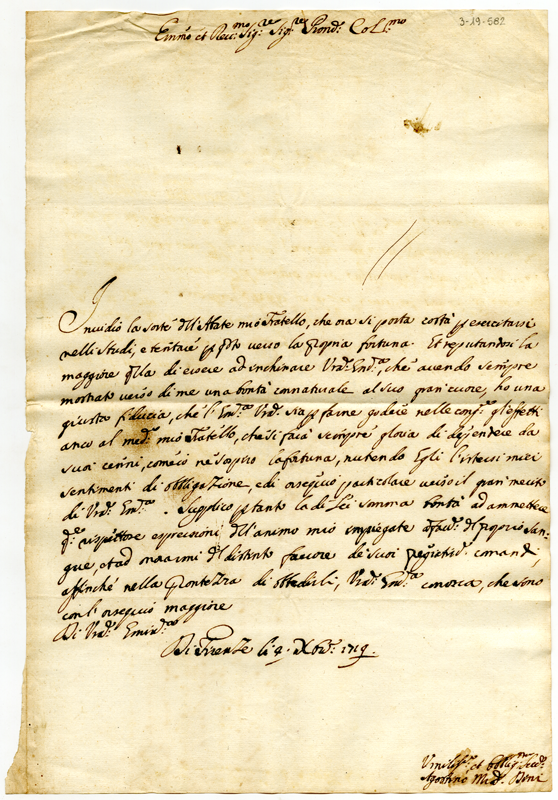 3-19-582
Emmo et Revmo Sigre Sigre Prone Colmo
Invidio la sorte dell'Abate mio Fratello, che ora si porta costà p esercitarsi
nelli Studi, e tentare p qsto verso la propria fortuna. Et reputandosi la
maggiore qlla di essere ad inchinare Vra Emza, che avendo sempre
mostrato verso di me una bontà connaturale al suo gran cuore, ho una
giusta fiducia, che l'Emza Vra sia p farne godere nelle gl'effetti
anco al medo mio Fratello, che si farà sempre gloria di dependere da
suoi cenni, com'io ne sospiro la fortuna, nutrendo Egli l'istessi miei
sentimenti di obbligazione, e di ossequio particolare verso il gran merito
di Vra Emza. Supplico ptanto la di Lei somma bontà ad ammettere
qste rispettose espressioni dell'animo mio impiegate a favre del proprio San-
gue, et ad onorarmi del distinto favore de suoi pregiatmi comandi,
affinché nella prontezza di obbedirli, Vra Emza conosca, che sono
con l'ossequio maggiore
Di Vra Eminza
Di Firenze li Xbre 1719.
Umilismo et Obbligmo Servre
Agostino Boni